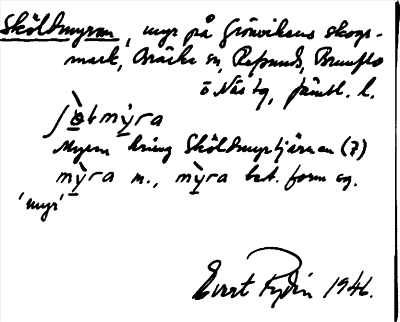 Sköldmyran, myr på Grönvikens skogs-
mark, Bräcke sn, Refsunds, Brunflo
o Näs tg, Jämtl. l.
myra
Myren kring Sköldmyrtjärnen (7)
myra n., myra best. form sg.
'myr'
Evert Rydin 1946.